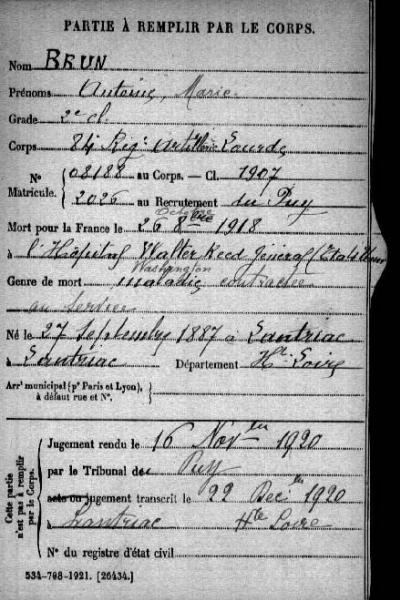 PARTIE À REMPLIR PAR LE CORPS.
Nom BRUN
Prénoms Antoine, Marie
Grade 2e cl.
Corps 84 Régt Artillerie Lourde
Nº Matricule. { 08188 au Corps. — Cl. 1907
2026 au Recrutement du Puy
Octobre
Mort pour la France le 26 8bre 1918
à l'Hôpital Walter Reed General (Etats Unis
Washington
Genre de mort maladie contractée
au service
Né le 27 Septembre 1887 à Lantriac
à Lantriac Département Hte Loire
Arrt municipal (pr Paris et Lyon),
à défaut rue et Nº.
Cette partie n'est pas à remplir par le Corps.
Jugement rendu le 16 Novbre 1920
par le Tribunal de Puy
acte ou jugement transcrit le 22 Decbre 1920
à Lantriac Hte Loire
Nº du registre d'état civil
534-708-1921. [26434.]